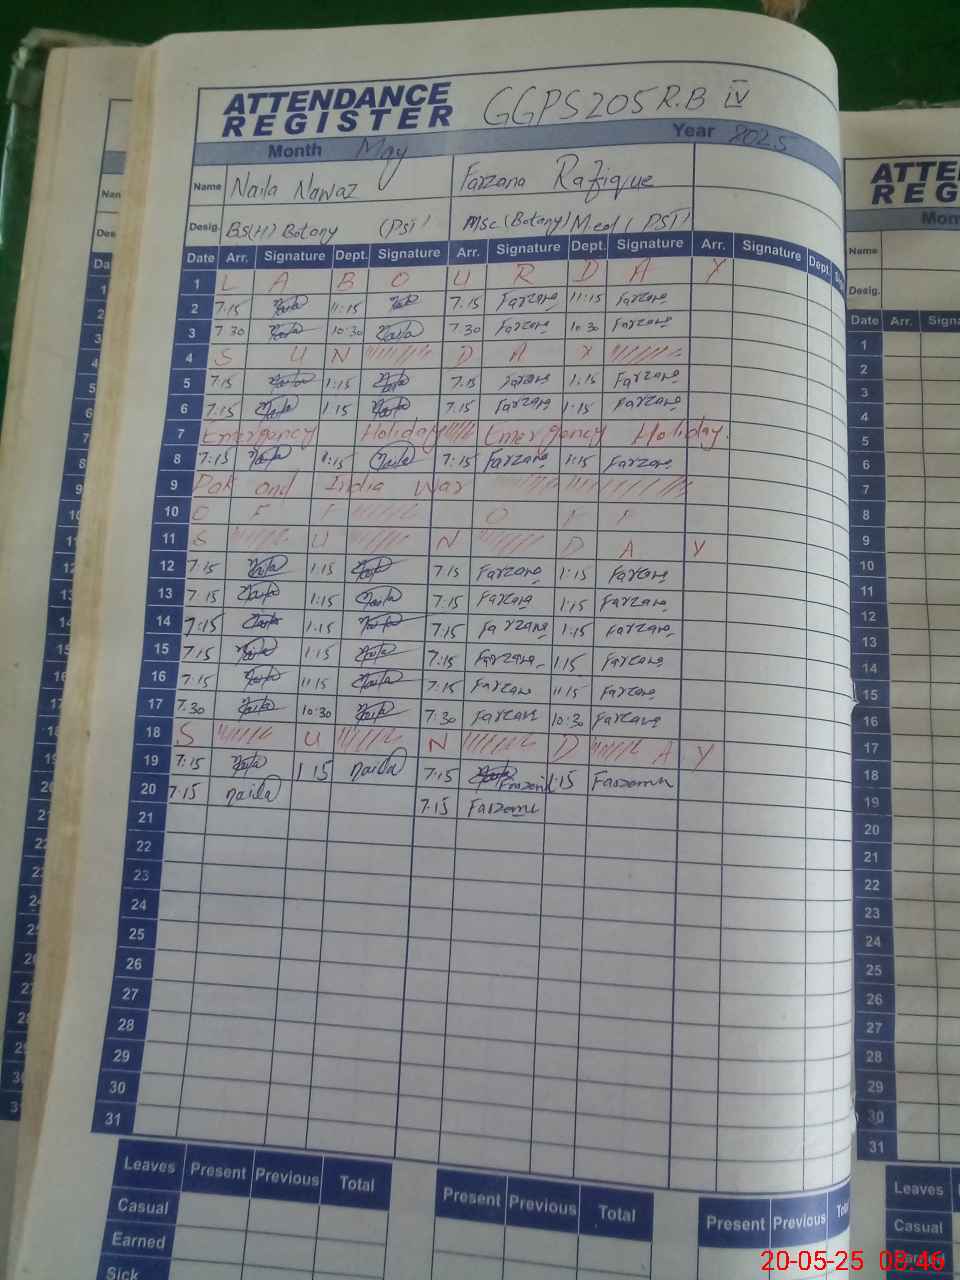 ATTENDANCE REGISTER GGPS 205 R.B IV
Month May Year 2025
Name Naila Nawaz Farzana Rafique
Desig. BS(H) Botany (PST) Msc (Botany) M.ed (PST)
Date Arr. Signature Dept. Signature Arr. Signature Dept. Signature Arr. Signature Dept.
1 L A B O U R D A Y
2 7:15 Naila 11:15 Naila 7:15 Farzana 11:15 Farzana
3 7.30 Naila 10:30 Naila 7.30 Farzana 10 30 Farzana
4 S U N D A Y
5 7:15 Naila 1:15 Naila 7:15 Farzana 1:15 Farzana
6 7:15 Naila 1:15 Naila 7:15 Farzana 1:15 Farzana
7 Emergancy Holiday Emergancy Holiday.
8 7:15 Naila 1:15 Naila 7:15 Farzana 1:15 Farzana
9 Pak and India War
10 O F F O F F
11 S U N D A Y
12 7:15 Naila 1:15 Naila 7:15 Farzana 1:15 Farzana
13 7:15 Naila 1:15 Naila 7:15 Farzana 1:15 Farzana
14 7:15 Naila 1:15 Naila 7:15 Farzana 1:15 Farzana
15 7:15 Naila 1:15 Naila 7:15 Farzana 1:15 Farzana
16 7:15 Naila 11:15 Naila 7:15 Farzana 11:15 Farzana
17 7.30 Naila 10:30 Naila 7:30 Farzana 10:30 Farzana
18 S U N D A Y
19 7:15 Naila 1:15 naila 7:15 1:15 Farzana
20 7:15 naila 7:15 Farzana
21
22
23
24
25
26
27
28
29
30
31
Leaves Present Previous Total Present Previous Total Present Previous
Casual
Earned
Sick
Name
Desig.
Date Arr.
1
2
3
4
5
6
7
8
9
10
11
12
13
14
15
16
17
18
19
20
21
22
23
24
25
26
27
28
29
30
31
Leaves
Casual
20-05-25 08:46